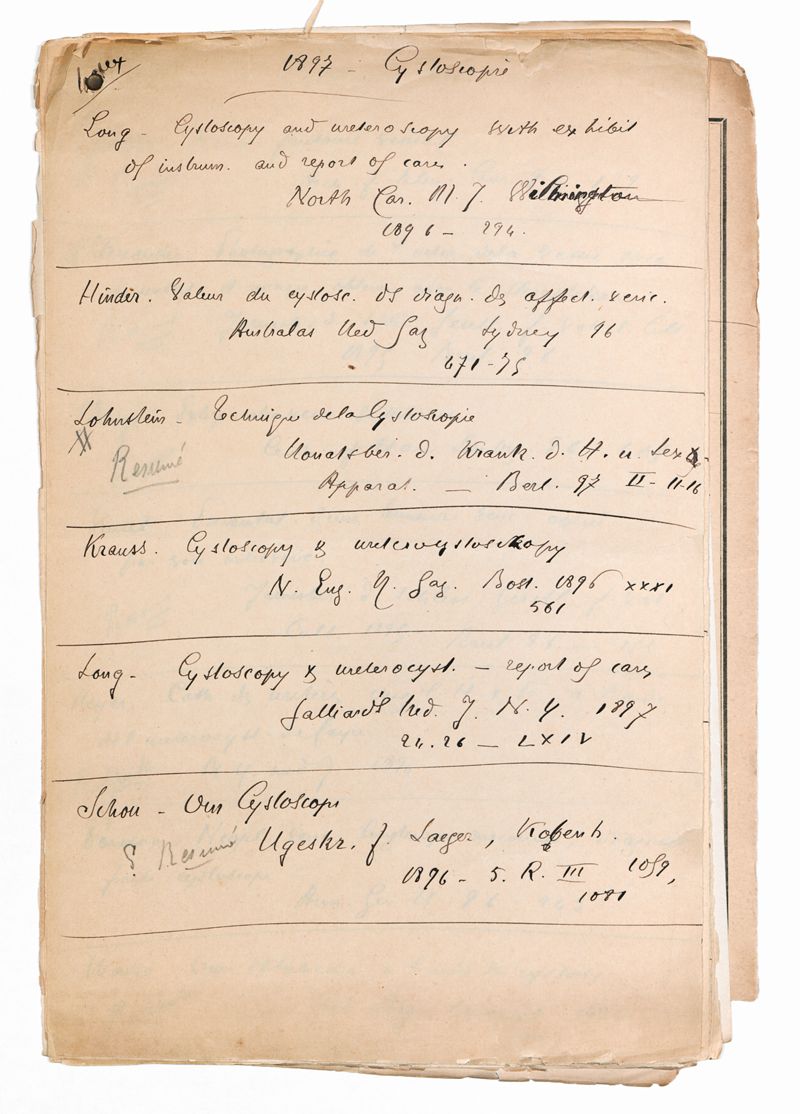 Index
1897 - Cystoscopie
Long - Cystoscopy and ureteroscopy with exhibit
of instrum. and report of cases.
North Car. M. J. Wilmington
1896 - 294.
Hinder. Valeur du cystosc. ds diagn. des affect. vesic.
Australas Med Gaz Sydney 96
471-75
Lohnstein - Technique de la Cystoscopie
Resumé
Monatsber. d. Krank. d. H. u. Sex.
Apparat. - Berl. 97 II - 11-16
Krauss. Cystoscopy & ureterocystoscopy
N. Eng. M. Gaz. Bost. 1896 XXXI
561
Long - Cystoscopy & ureterocyst. - report of cases
Gaillard's Med. J. N. Y. 1897
24.26 - LXIV
Schou - Om Cystoscopi
Resumé Ugeskr. f. Laeger, Kobenh.
1896 - 5. R. III 1059,
1081